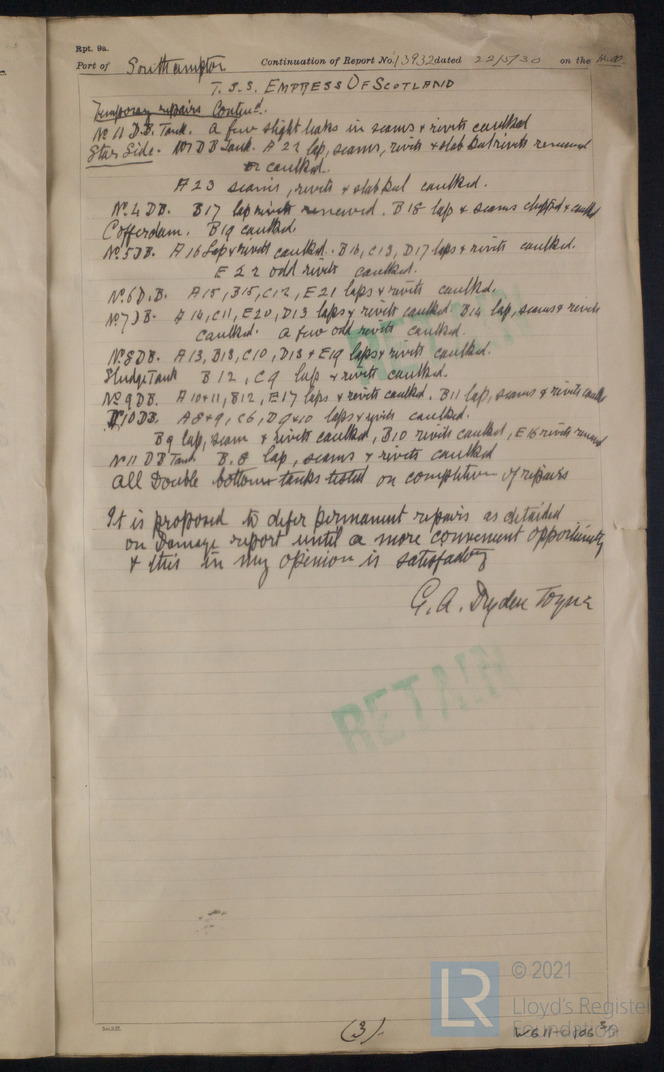 Rpt. 9a.
Port of Southampton Continuation of Report No. 13932 dated 22/5/30 on the
T. S. S. EMPRESS OF SCOTLAND
Temporary repairs Contend.
No 11 D.B. Tank. A few slight leaks in seams & rivets caulked
Star Side. No 1 D B Tank. A 22 lap, seams, rivets & slab butt rivets renewed
or caulked.
A 23 seams, rivets & slab butt caulked.
No. 4 DB. B17 lap rivets renewed. B18 lap & seams chipped & caulked
Cofferdam. B19 caulked
No. 5 DB. A16 laps & rivets caulked. B16, C13, D17 laps & rivets caulked.
E 22 odd rivets caulked.
No. 6 D.B. A15, B15, C12, E21 laps & rivets caulked.
No. 7 DB. A14, C11, E20, D13 laps & rivets caulked B14 lap, seams & rivets
caulked. A few odd rivets caulked.
No. 8 DB. A13, B13, C10, D13 & E19 laps & rivets caulked.
Sludge Tank B12, C9 lap & rivets caulked.
No. 9 DB. A10 & 11, B12, E17 laps & rivets caulked. B11 lap, seams & rivets caulked
No 10 DB. A8 & 9, C6, D9 & 10 laps & rivets caulked.
B9 lap, seam & rivets caulked, B10 rivets caulked, E16 rivets renewed
No 11 DB Tank B.8 lap, seams & rivets caulked
All Double bottom tanks tested on completion of repairs
It is proposed to defer permanent repairs as detailed
on Damage report until a more convenient opportunity
& this in my opinion is satisfactory
G. A. Dryden Toyne
RETAIN
RETAIN
(3).
LR
© 2021
Lloyd's Register
Foundation
W611-0106